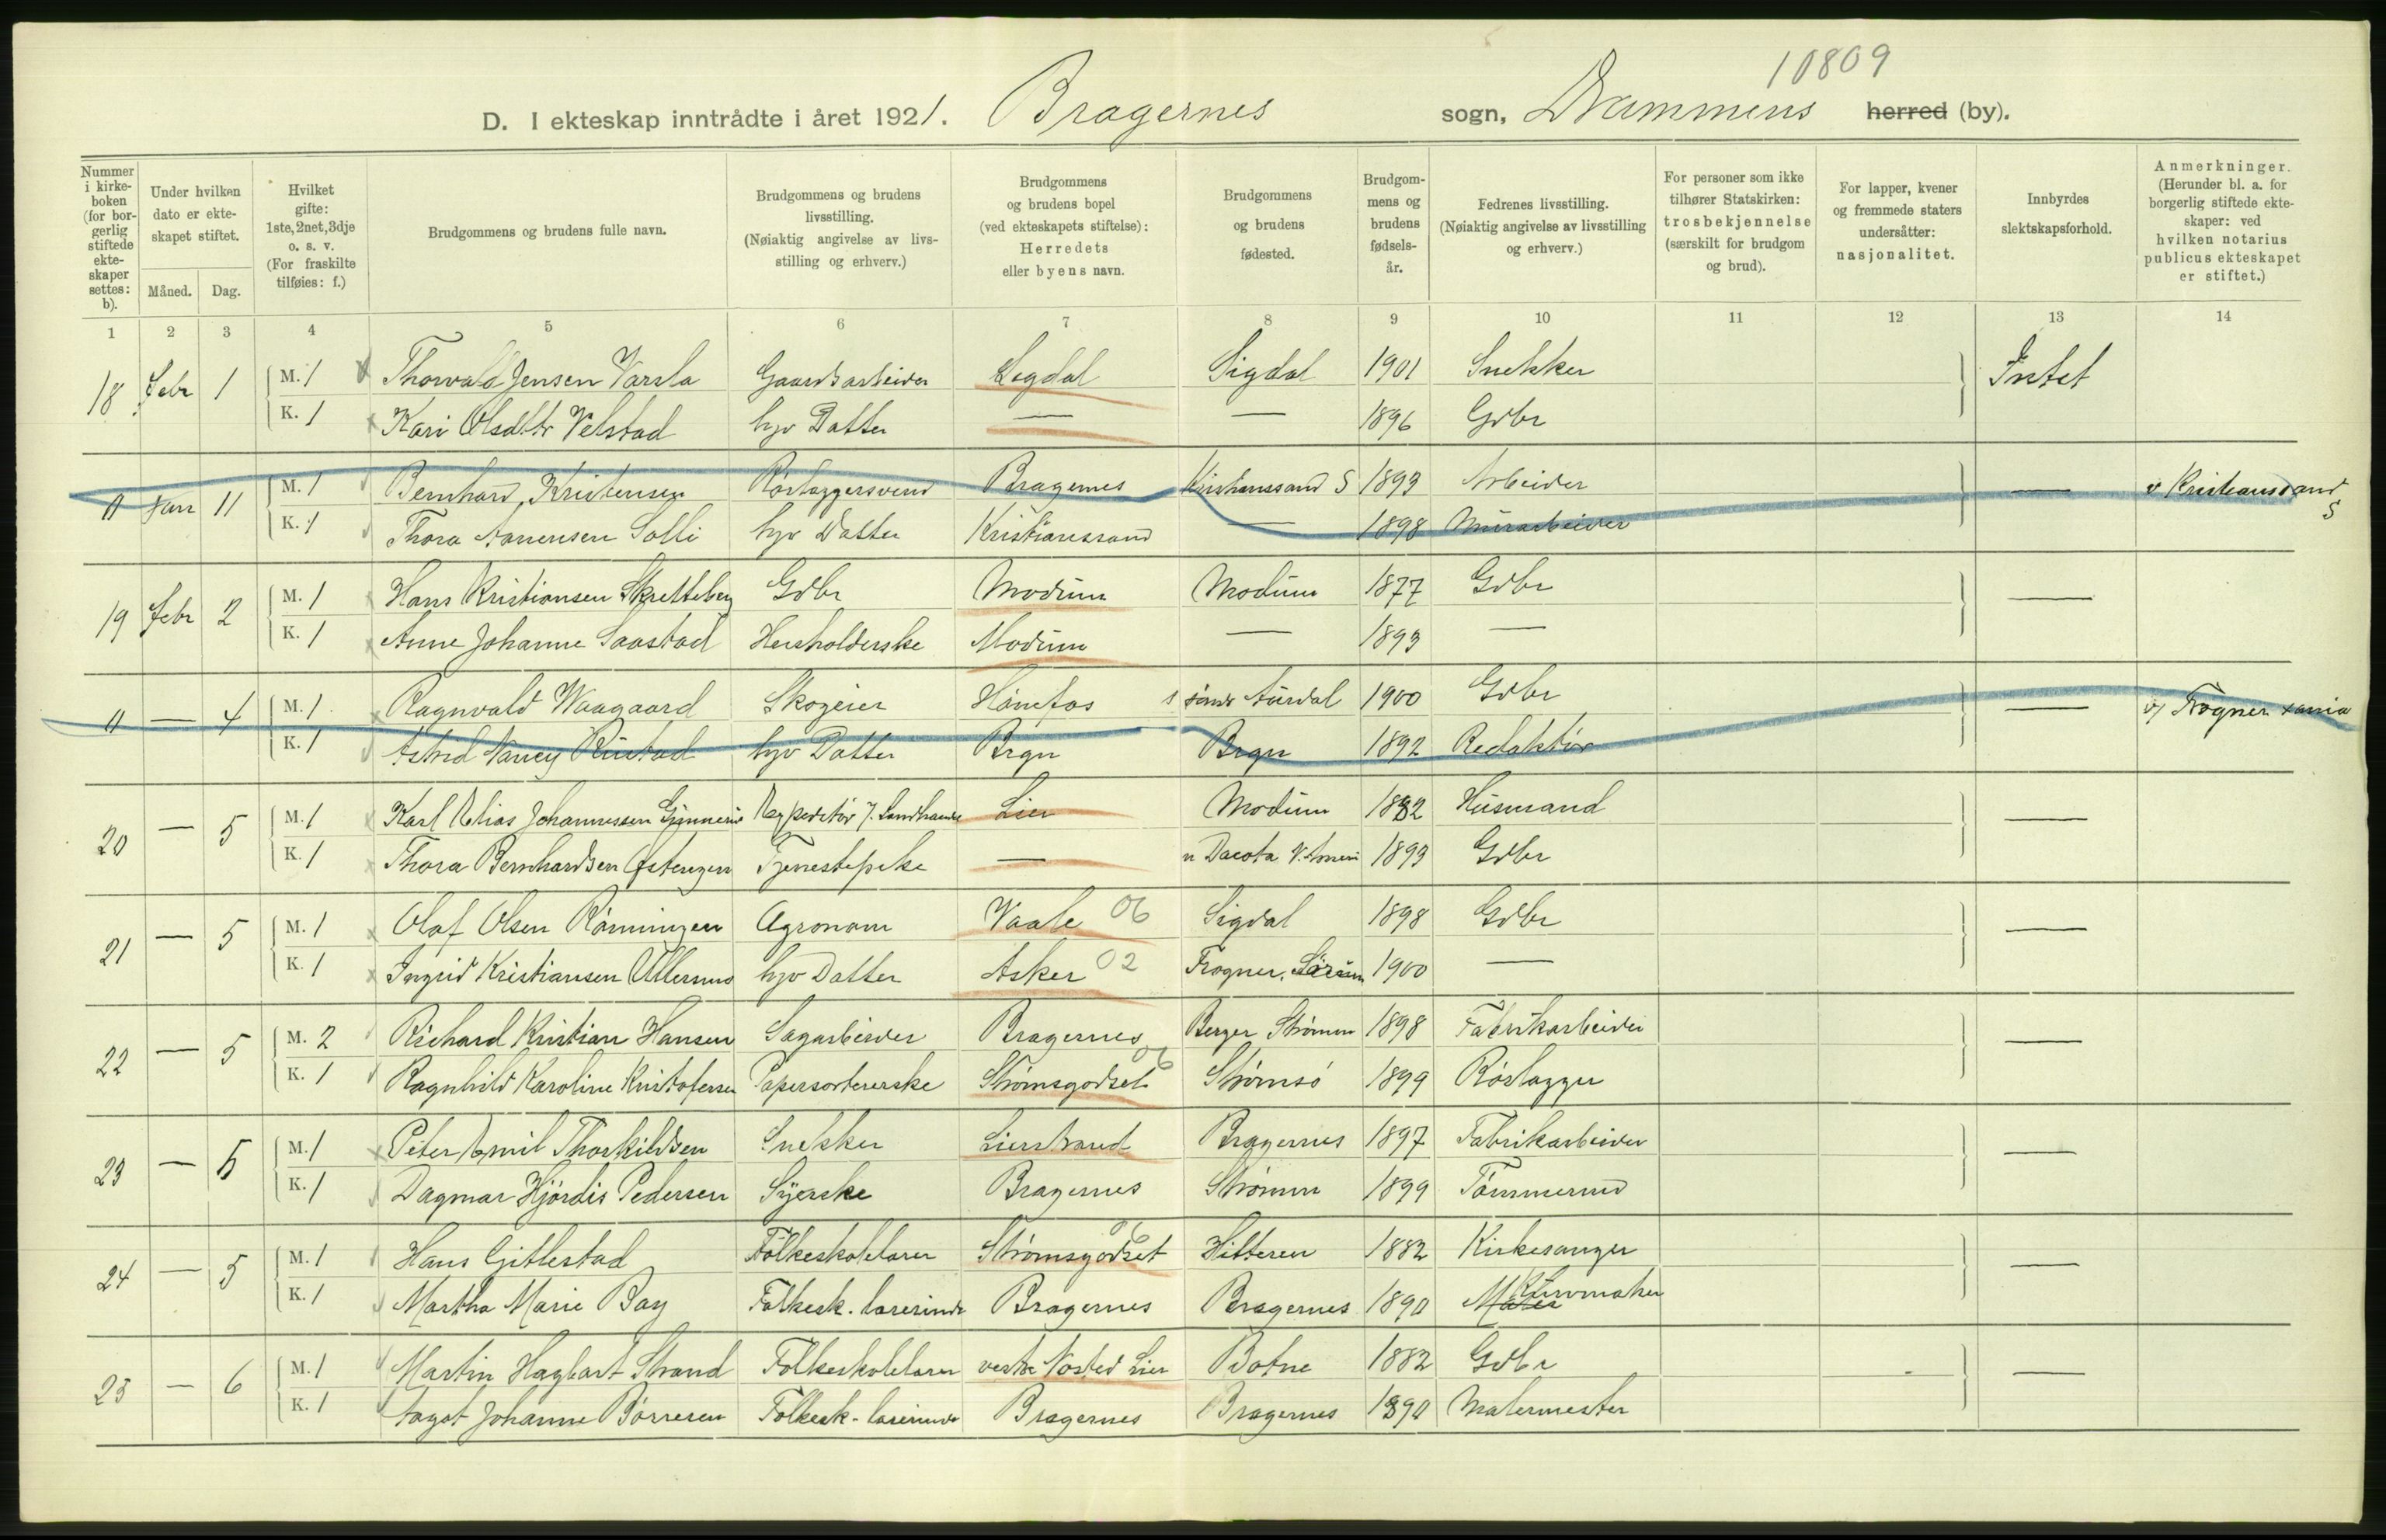 10809
D. I ekteskap inntrådte i året 1921. Bragernes sogn, Drammens herred (by).
Nummer i kirke-boken (for bor-gerlig stiftede ekte-skaper settes: b).
Under hvilken dato er ekte-skapet stiftet.
Måned. Dag.
Hvilket gifte: 1ste, 2net, 3dje o. s. v. (For fraskilte tilføies: f.)
Brudgommens og brudens fulle navn.
Brudgommens og brudens livsstilling. (Nøiaktig angivelse av livs-stilling og erhverv.)
Brudgommens og brudens bopel (ved ekteskapets stiftelse): Herredets eller byens navn.
Brudgommens og brudens fødested.
Brudgom-mens og brudens fødsels-år.
Fedrenes livsstilling. (Nøiaktig angivelse av livsstilling og erhverv.)
For personer som ikke tilhører Statskirken: trosbekjennelse (særskilt for brudgom og brud).
For lapper, kvener og fremmede staters undersåtter: nasjonalitet.
Innbyrdes slektskapsforhold.
Anmerkninger. (Herunder bl. a. for borgerlig stiftede ekte-skaper: ved hvilken notarius publicus ekteskapet er stiftet.)
1 2 3 4 5 6 7 8 9 10 11 12 13 14
18 Febr 1 M. 1 Thorvald Jensen Varsla Gaardsarbeider Sigdal 1901 Snekker Intet
K. 1 Kari Olsdtr Velstad hjv Datter — — 1896 Gdbr
0 Jan 11 M. 1 Bernhard Kristensen Rørlæggersvend Bragernes Kristianssand S 1893 Arbeider — v Kristianssand S
K. 1 Thora Aanensen Solli hjv Datter Kristianssand — 1898 Murarbeider
19 Febr 2 M. 1 Hans Kristiansen Skretteberg Gdbr Modum Modum 1877 Gdbr —
K. 1 Anne Johanne Saastad Husholderske Modum — 1893 —
0 — 4 M. 1 Ragnvald Waagaard Skogeier Hønefos søndr Aurdal 1900 Gdbr — v/ Frogner Xania
K. 1 Astrid Nancy Rustad hjv Datter Brgn Brgn 1892 Redaktør
20 — 5 M. 1 Karl Elias Johannessen Lier Modum 1882 Husmand —
K. 1 Thora Bernhardsen Tjenestepike — n Dacota N. Ameri 1893 Gdbr
21 — 5 M. 1 Olaf Olsen Rønningen Agronom Vaale 06 Sigdal 1898 Gdbr —
K. 1 Ingrid Kristiansen Ullernes hjv Datter Asker 02 Frogner, Sørum 1900 —
22 — 5 M. 2 Richard Kristian Hansen Sagarbeider Bragernes Berger Strømm 1898 Fabrikarbeider —
K. 1 Ragnhild Karoline Kristofersen Papersortererske Strømsgodset 06 Strømsø 1899 Rørlægger
23 — 5 M. 1 Peter Emil Thorkildsen Snekker Lierstrand Bragernes 1897 Fabrikarbeider —
K. 1 Dagmar Hjørdis Pedersen Syerske Bragernes Strømm 1899 Tømmermd
24 — 5 M. 1 Hans Gitlestad Folkeskolelærer Strømsgodset 06 Hitteren 1882 Kirkesanger —
K. 1 Martha Marie Bay Folkesk. lærerinde Bragernes Bragernes 1890 Maler
25 — 6 M. 1 Martin Hagbart Strand Folkeskolelærer vestre Nøsted Lier Botne 1882 Gdbr —
K. 1 Aagot Johanne Børresen Folkesk. lærerinde Bragernes Bragernes 1890 Malermester